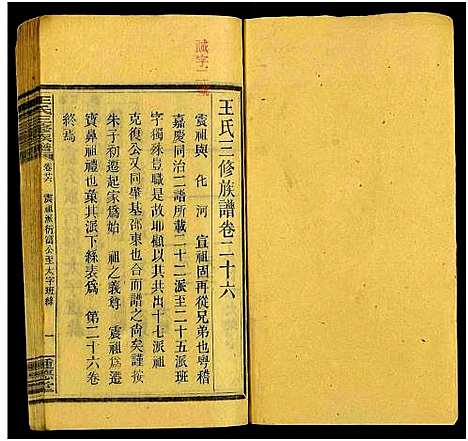 誠字二號
王氏三修族譜卷二十六
震祖與 化 河 宣祖固再從兄弟也粵稽
嘉慶同治二譜所載二十二派至二十五派班
字獨殊豈職是故耶顧其共出十七派祖
克復公又同肇基邵東也合而譜之尚矣謹按
朱子初遷起家爲始 祖之義尊 震祖爲遷
寶鼻祖禮也彙其派下絲表爲 第二十六卷
終焉
王氏三修族譜
卷廿六
震祖派衍富公至大字班絲
一